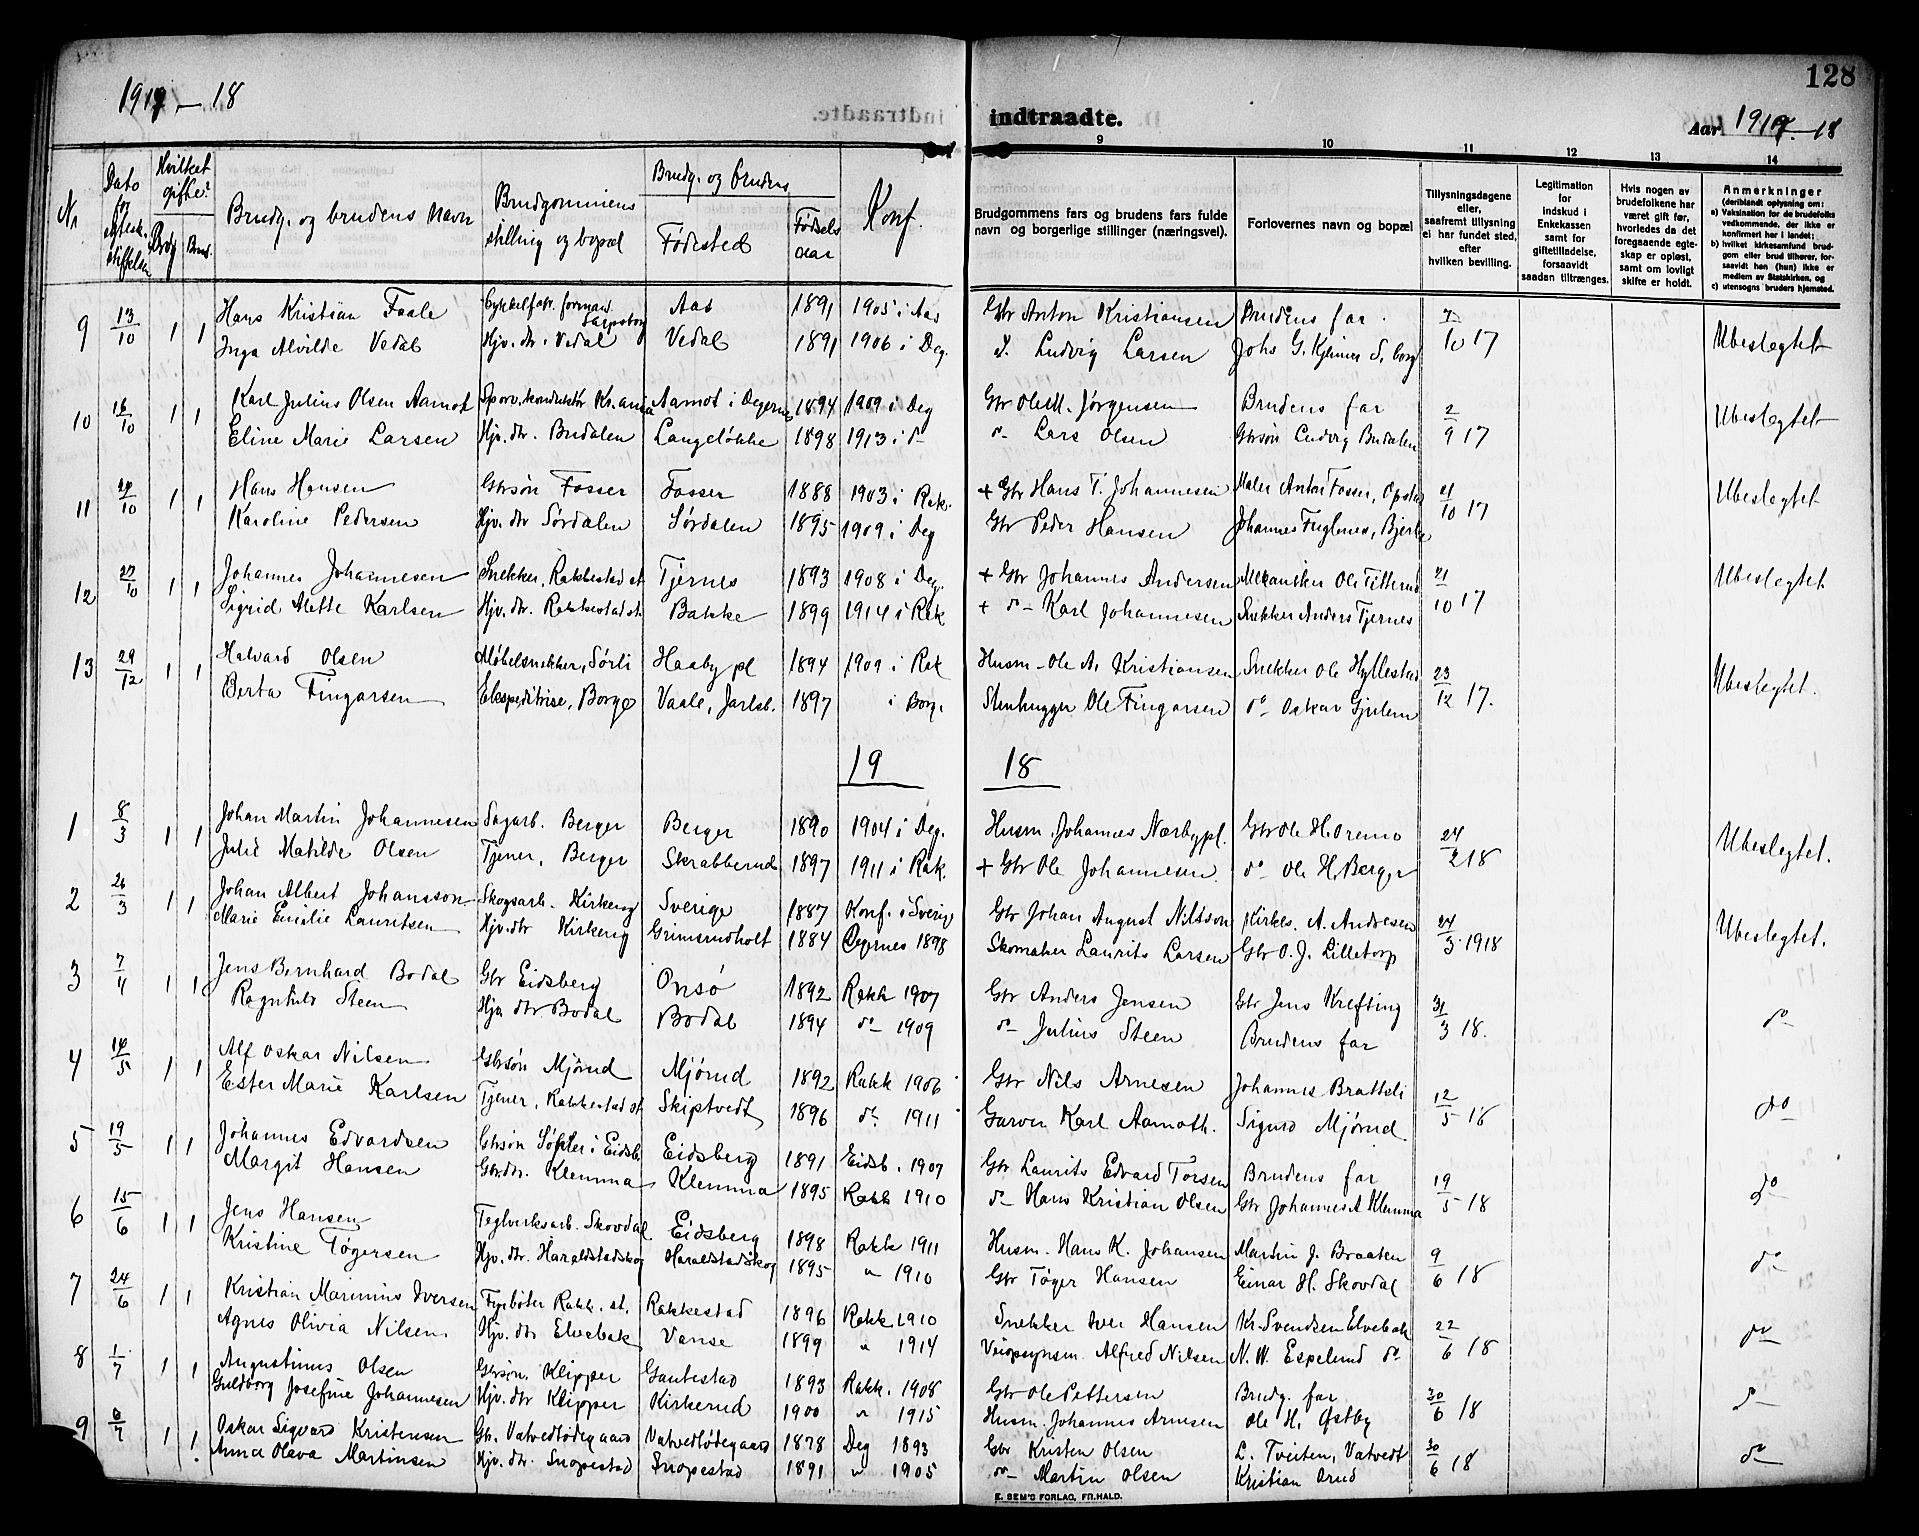 128
1917 – 18
indtraadte.
Aar 1917 – 18
Nr
Dato for ægteskabsstiftelsen
Hvilket gifte?
Brudg. Brud.
Brudg. og brudens navn
Brudgommens stilling og bopæl
Brudg. og brudens
Fødested
Fødselsaar
Konf.
9
Brudgommens fars og brudens fars fulde navn og borgerlige stillinger (næringsvei).
10
Forlovernes navn og bopæl
11
Tillysningsdagene eller, saafremt tillysning ei har fundet sted, efter hvilken bevilling.
12
Legitimation for indskud i Enkekassen samt for giftetilladelse, forsaavidt saadan tiltrænges.
13
Hvis nogen av brudefolkene har været gift før, hvorledes da det foregaaende egteskap er opløst, samt om lovligt skifte er holdt.
14
Anmerkninger (deriblandt oplysning om: a) Vaksination for de brudefolks vedkommende, der ikke er konfirmert her i landet; b) hvilket kirkesamfund brudgom eller brud tilhører, forsaavidt han (hun) ikke er medlem av Statskirken, og c) utensogns bruders hjemsted.
9 13/10 1 1 Hans Kristian Faale Cykkelfabr. formand Sarpsborg Aas 1891 1905 i Aas Gbr Anton Kristiansen Brudens far 7/10 17 Ubeslegtet
Inga Alvilde Vedal Hjv. dtr. Vedal Vedal 1891 1906 i Deg. d. Ludvig Larsen Johs G. Kjennes S. borg
10 16/10 1 1 Karl Julius Olsen Aamot Sporv. konduktør Kr.ania Aamot i Degernes 1894 1909 i Deg Gbr Ole M. Jørgensen Brudens far 2/9 17 Ubeslegtet
Eline Marie Larsen Hjv. dtr. Budalen Langeløkke 1898 1913 i do do Lars Olsen Gbrsøn Ludvig Budalen
11 24/10 1 1 Hans Hansen Gbrsøn Fosser Fosser 1888 1903 i Rak. + Gbr Hans T. Johannesen Maler Anton Fosser, Opstad 21/10 17 Ubeslegtet
Karoline Pedersen Hjv. dtr Sørdalen Sørdalen 1895 1909 i Deg Gbr Peder Hansen Johannes Fuglenes, Bjerke
12 27/10 1 1 Johannes Johannesen Snekker, Rakkestad st Tjernes 1893 1908 i Deg. + Gbr Johannes Andersen Mekaniker Ole Titterud 21/10 17 Ubeslegtet
Sigrid Alette Karlsen Hjv. dtr. Rakkestad st. Bakke 1899 1914 i Rak + do – Karl Johannesen Snekker Anders Tjernes
13 29/12 1 1 Halvard Olsen Møbelsnekker, Sørli Haaby pl 1894 1909 i Rak Husm – Ole A. Kristiansen Snekker Ole Hyllestad 23/12 17. Ubeslegtet.
Berta Fingarsen Ekspeditrise, Borge Vaale, Jarlsb. 1897 i Borg. Stenhugger Ole Fingarsen do Oskar Gjulem
19 18
1 8/3 1 1 Johan Martin Johannesen Sagarb. Berger Berger 1890 1904 i Deg. Husm. Johannes Nærbypl. Gbr Ole H. Oremo 24/2 18 Ubeslegtet.
Julie Matilde Olsen Tjener, Berger Skrabberud 1897 1911 i Rak. + Gbr Ole Johannesen. do Ole H. Berger
2 26/3 1 1 Johan Albert Johansson Skogsarb. Kirkeng Sverige 1887 Konf. i Sverig Gbr Johan August Nilsson Kirkes. A. Andresen 24/3 1918 Ubeslegtet.
Marie Emilie Lauritsen Hjv. dtr Kirkeng Grimsrudholt 1884 Degernes 1898 Skomaker Laurits Larsen Gbr O. J. Lilletorp
3 7/4 1 1 Jens Bernhard Bodal Gbr Eidsberg Onsø 1892 Rakk 1907 Gbr Anders Jensen Gbr Jens Krefting 31/3 18. do
Ragnhild Steen Hjv dtr Bodal Bodal 1894 do 1909 do Julius Steen Brudens far
4 16/5 1 1 Alf Oskar Nilsen Gbrsøn Mjørud Mjørud 1892 Rakk 1906 Gbr Nils Arnesen Johannes Bratteli 12/5 18 do
Ester Marie Karlsen Tjener, Rakkestad st Skiptvedt 1896 do 1911 Garver Karl Aamoth. Sigurd Mjørud
5 19/5 1 1 Johannes Edvardsen Gbrsøn i Eidsb. Eidsberg 1891 Eidsb. 1907 Gbr Laurits Edvard Torsen Brudens far 19/5 18 do
Margit Hansen Gbrdtr. Klemma Klemma 1895 Rakk 1910 do Hans Kristian Olsen Gbr Johannes A Klemma
6 15/6 1 1 Jens Hansen Teglverksarb. Skovdal Eidsberg 1898 Rakk 1911 Husm. Hans K. Johansen Martin J. Braaten 9/6 18 do
Kristine Tøgersen Hjv. dtr. Haraldstadskog Haraldstadskog 1895 " 1910 Gbr Tøger Hansen Einar H. Skovdal
7 24/6 1 1 Kristian Marinius Iversen Fyrbøter Rakk. st. Rakkestad 1896 Rakk 1910 Snekker Iver Hansen Kr. Svendsen Elvebak 22/6 18 do
Agnes Olivia Nilsen Hjv. dtr Elvebak Vanse 1899 " 1914 Veiopsynsm. Alfred Nilsen N. W. Espelund do
8 1/7 1 1 Augustinus Olsen Gbrsøn. Klipper Gautestad 1893 Rakk. 1908 Gbr Ole Pettersen Brudg. far 30/6 18 do
Guldborg Josefine Johannesen Hjv. dtr Klipper Kirkerud 1900 " 1915 Husm. Johannes Arnesen Ole H. Østby
9 6/7 1 1 Oskar Sigvard Kristensen Gbr. Vatvedtødegaard Vatvedtødegaard 1878 Deg 1893 Gbr Kristen Olsen L. Tveiten, Vatvedt 30/6 18 do
Anna Olava Martinsen Hjv. dtr. Snopestad Snopestad 1891 " 1905 do Martin Olsen Kristian Orud
E. SEM'S FORLAG, FR.HALD.